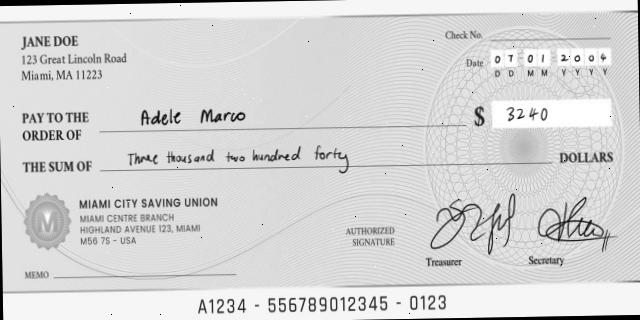 JANE DOE
123 Great Lincoln Road
Miami, MA 11223
Check No.
Date 07 01 2004
D D M M Y Y Y Y
PAY TO THE ORDER OF Adele Marco
$ 3240
THE SUM OF Three thousand two hundred forty DOLLARS
M
MIAMI CITY SAVING UNION
MIAMI CENTRE BRANCH
HIGHLAND AVENUE 123, MIAMI
M56 7S - USA
AUTHORIZED SIGNATURE
Treasurer
Secretary
MEMO
A1234 - 556789012345 - 0123